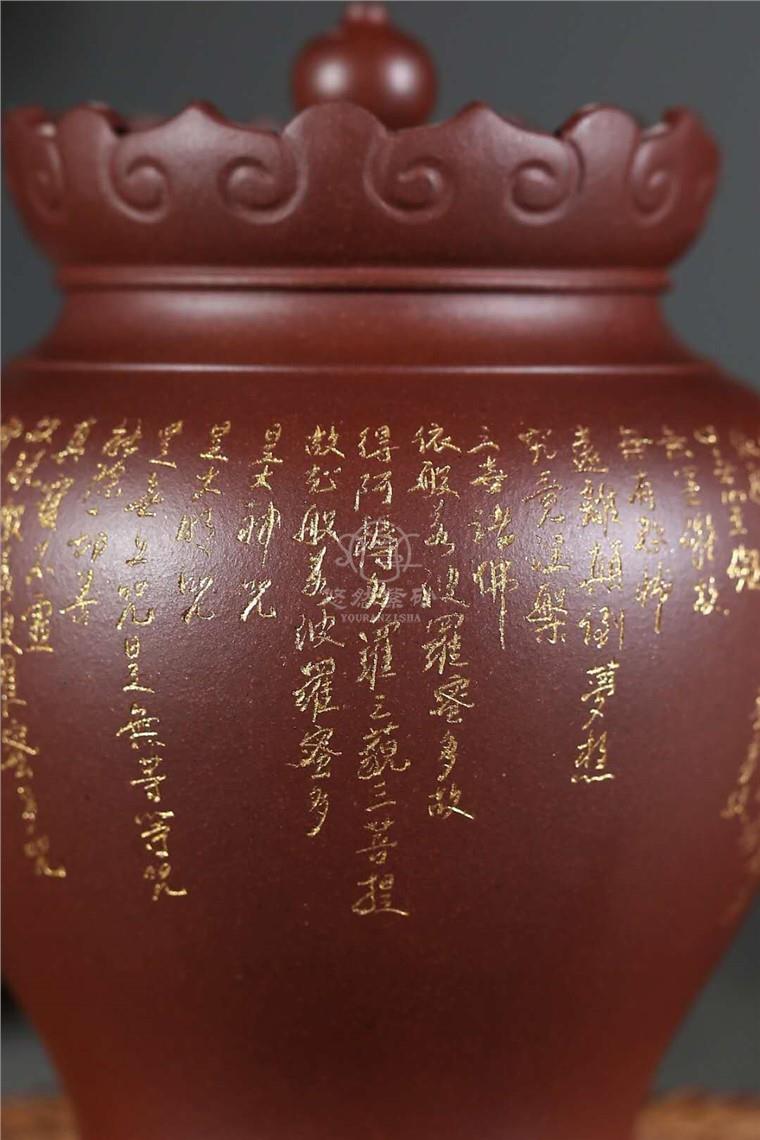 無有恐怖
遠離顛倒夢想
究竟涅槃
三世諸佛
依般若波羅蜜多故
得阿耨多羅三藐三菩提
故知般若波羅蜜多
是大神咒
是大明咒
是無上咒是無等等咒
能除一切苦
真實不虛
悠然紫砂
YOURANZISHA